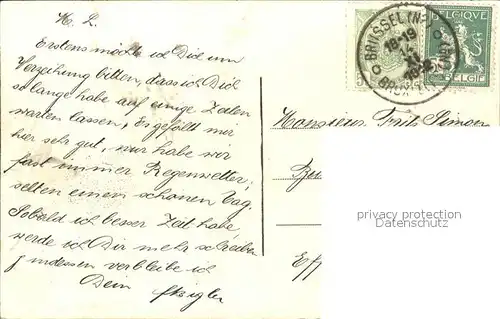 H. L.
Erstens möchte ich Dich um
Verzeihung bitten, dass ich Dich
so lange habe auf einige Zeilen
warten lassen, Es gefällt mir
hier sehr gut, nur habe wir
fast immer Regenwetter;
selten einen schönen Tag.
Sobald ich besser Zeit habe,
werde ich Dir mehr schreiben
indessen verbleibe ich
Dein
BRUSSEL (N-
18-19
14
XI
BRUX
BELGIQUE
BELGIË
Monsieur Fritz Simon
privacy protection
Datenschutz